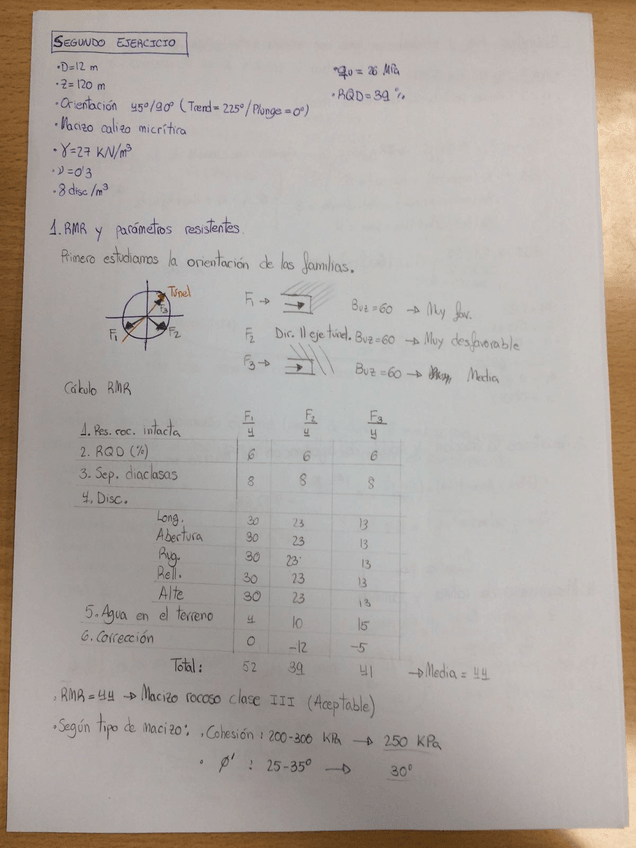 SEGUNDO EJERCICIO
• D=12 m
• Z=120 m
• Orientación 45°/90° (Trend=225°/Plunge=0°)
• Macizo calizo micrítica
• γ=27 KN/m³
• ν=0'3
• 8 disc/m³
• qu = 26 MPa
• RQD=39 %
1. RMR y parámetros resistentes.
Primero estudiamos la orientación de las familias.
Túnel
F1 F2 F3
F1 → Buz=60 → Muy fav.
F2 Dir. II eje túnel. Buz=60 → Muy desfavorable
F3 → Buz=60 → Media
Cálculo RMR
F1 F2 F3
1. Res. roc. intacta 4 4 4
2. RQD (%) 6 6 6
3. Sep. diaclasas 8 8 8
4. Disc.
Long. 30 23 13
Abertura 30 23 13
Rug. 30 23 13
Rell. 30 23 13
Alte 30 23 13
5. Agua en el terreno 4 10 15
6. Corrección 0 -12 -5
Total: 52 39 41 → Media = 44
• RMR = 44 → Macizo rocoso clase III (Aceptable)
• Según tipo de macizo: • Cohesión: 200-300 KPa → 250 KPa
• ϕ' : 25-35° → 30°